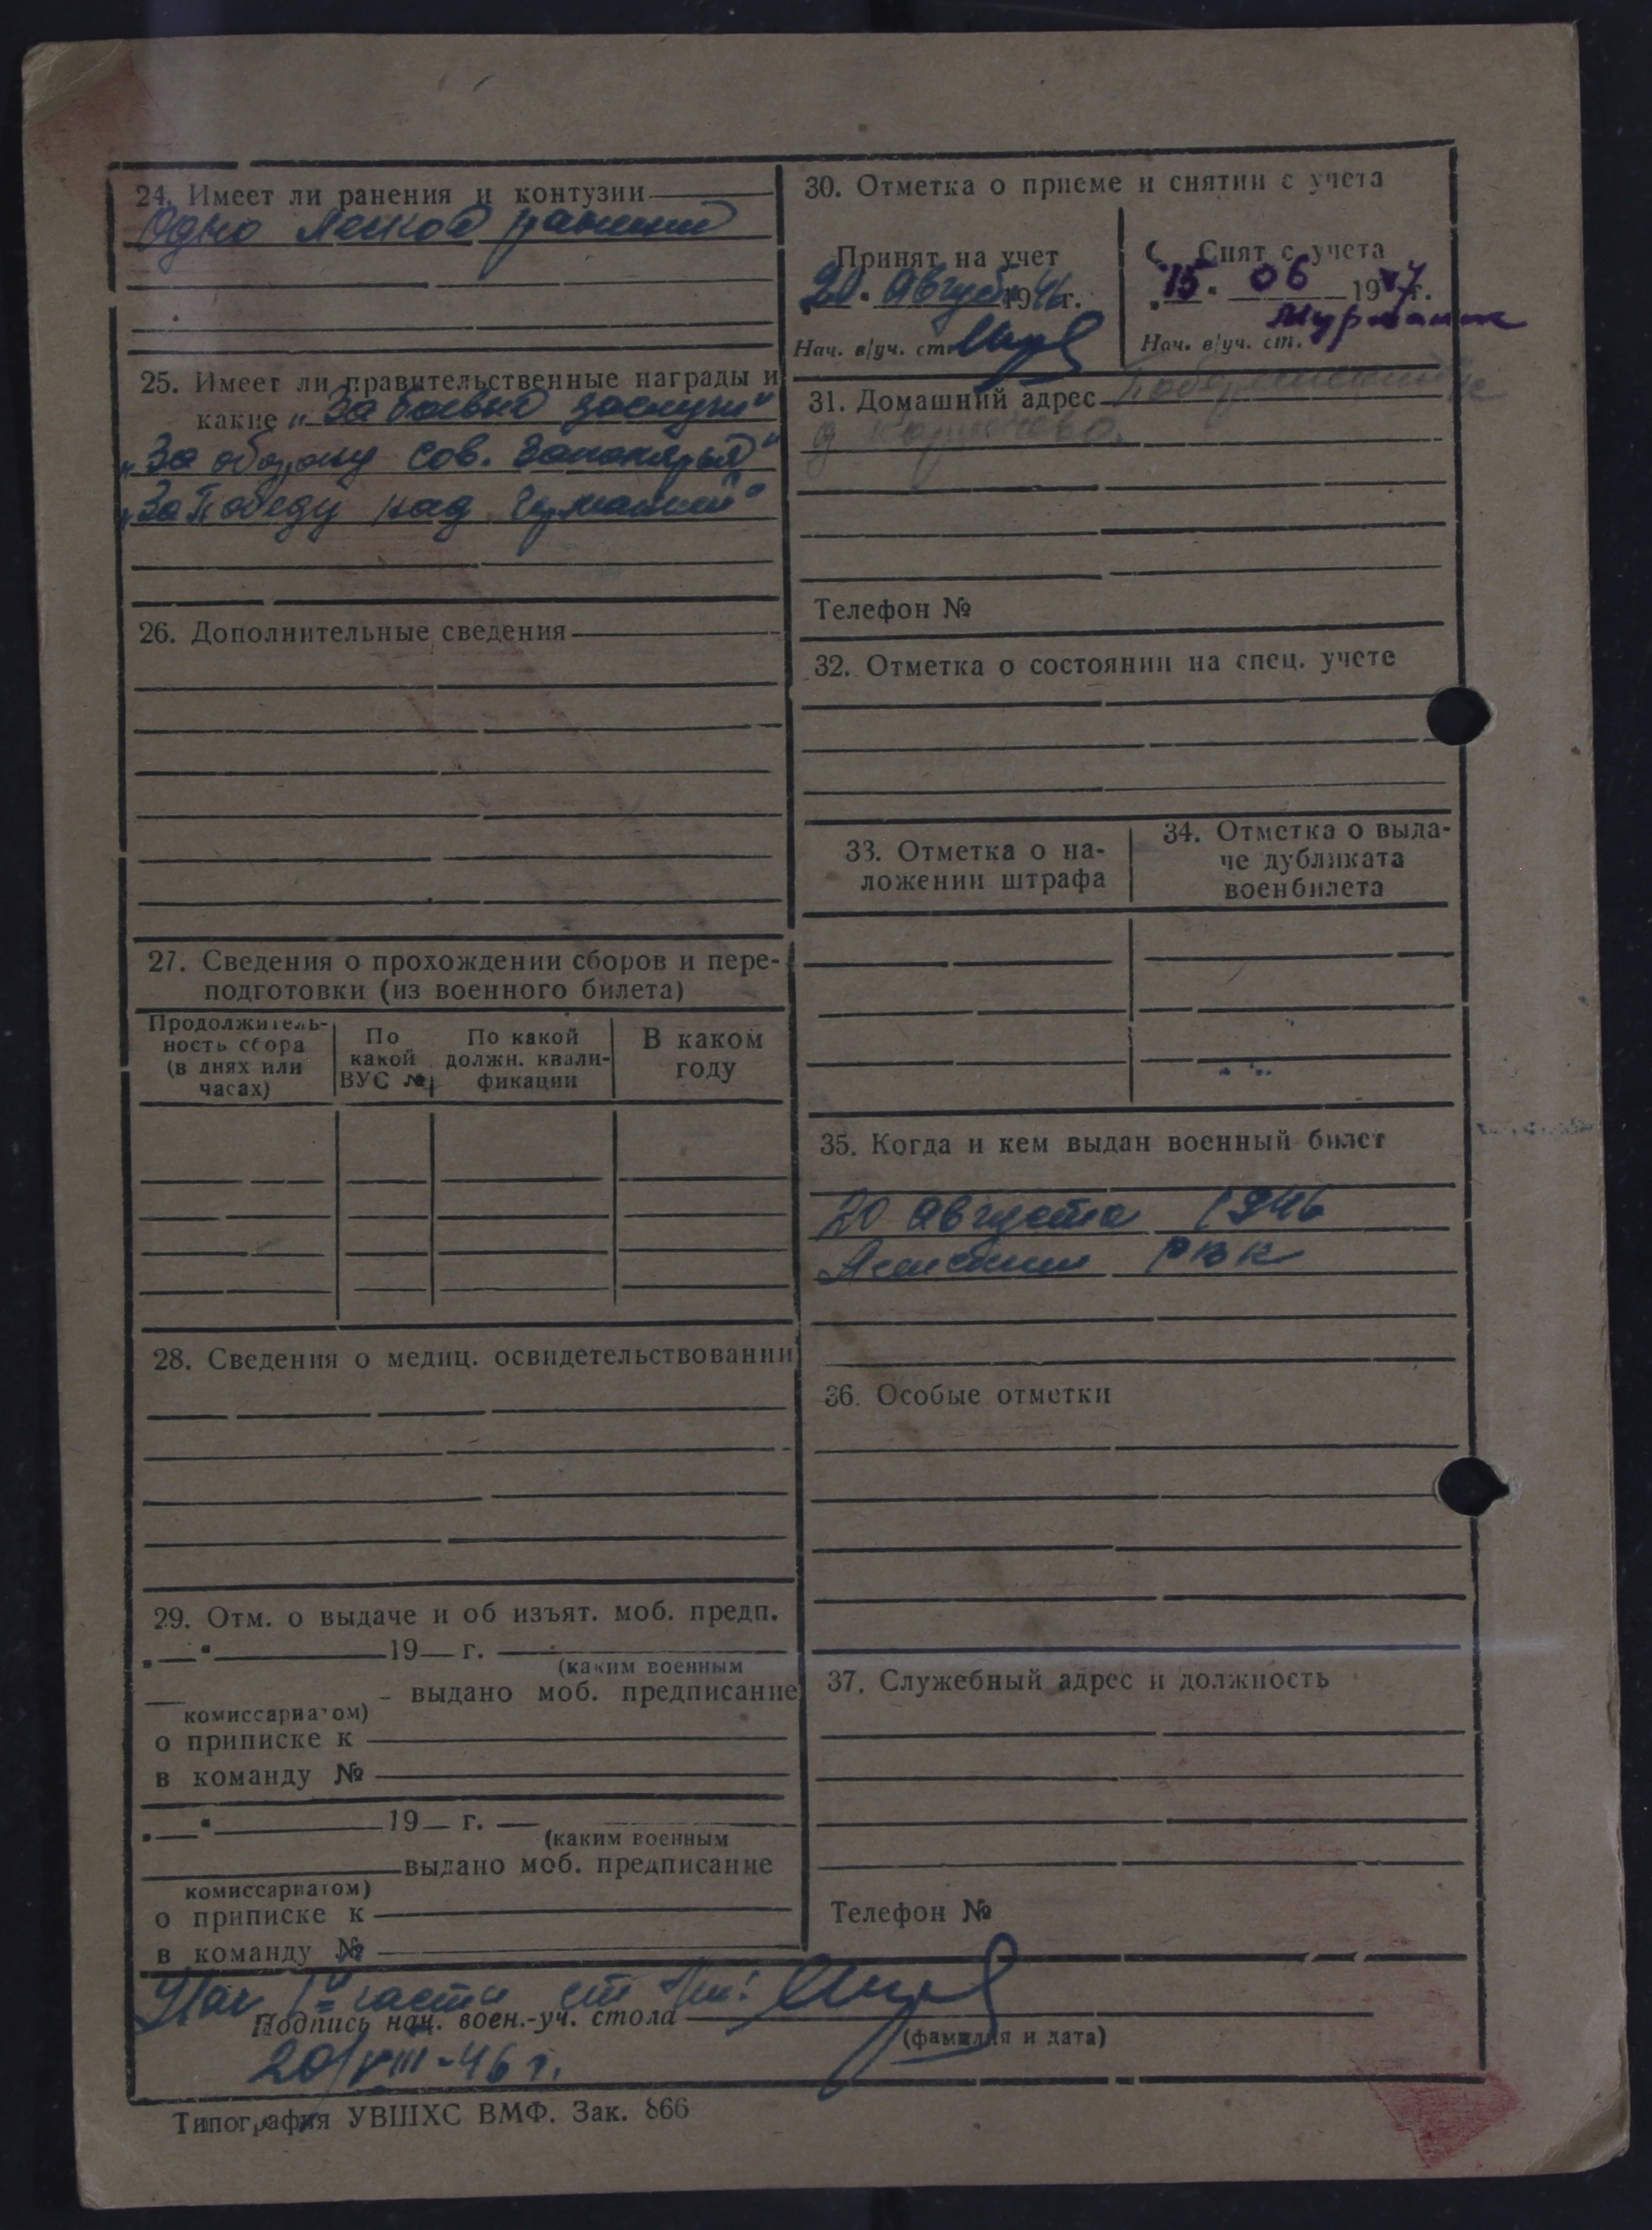 24. Имеет ли ранения и контузии
Одно легкое ранение
25. Имеет ли правительственные награды и
какие „За боевые заслуги"
„За оборону Сов. Заполярья"
„За Победу над Германией"
26. Дополнительные сведения
27. Сведения о прохождении сборов и пере-
подготовки (из военного билета)
Продолжитель-
ность сбора
(в днях или
часах)
По
какой
ВУС №
По какой
должн. квали-
фикации
В каком
году
28. Сведения о медиц. освидетельствовании
29. Отм. о выдаче и об изъят. моб. предп.
19 г.
(каким военным
выдано моб. предписание
комиссариатом)
о приписке к
в команду №
19 г.
(каким военным
выдано моб. предписание
комиссариатом)
о приписке к
в команду №
30. Отметка о приеме и снятии с учета
Принят на учет
20 Августа 1946 г.
Нач. в/уч. ст.
Снят с учета
15 06 1947 г.
Мурманск
Нач. в/уч. ст.
31. Домашний адрес
Телефон №
32. Отметка о состоянии на спец. учете
33. Отметка о на-
ложении штрафа
34. Отметка о выда-
че дубликата
военбилета
35. Когда и кем выдан военный билет
20 Августа 1946
РВК
36. Особые отметки
37. Служебный адрес и должность
Телефон №
Нач 1й части ст
Подпись нач. воен.-уч. стола
(фамилия и дата)
20/VIII-46 г.
Типография УВШХС ВМФ. Зак. 866